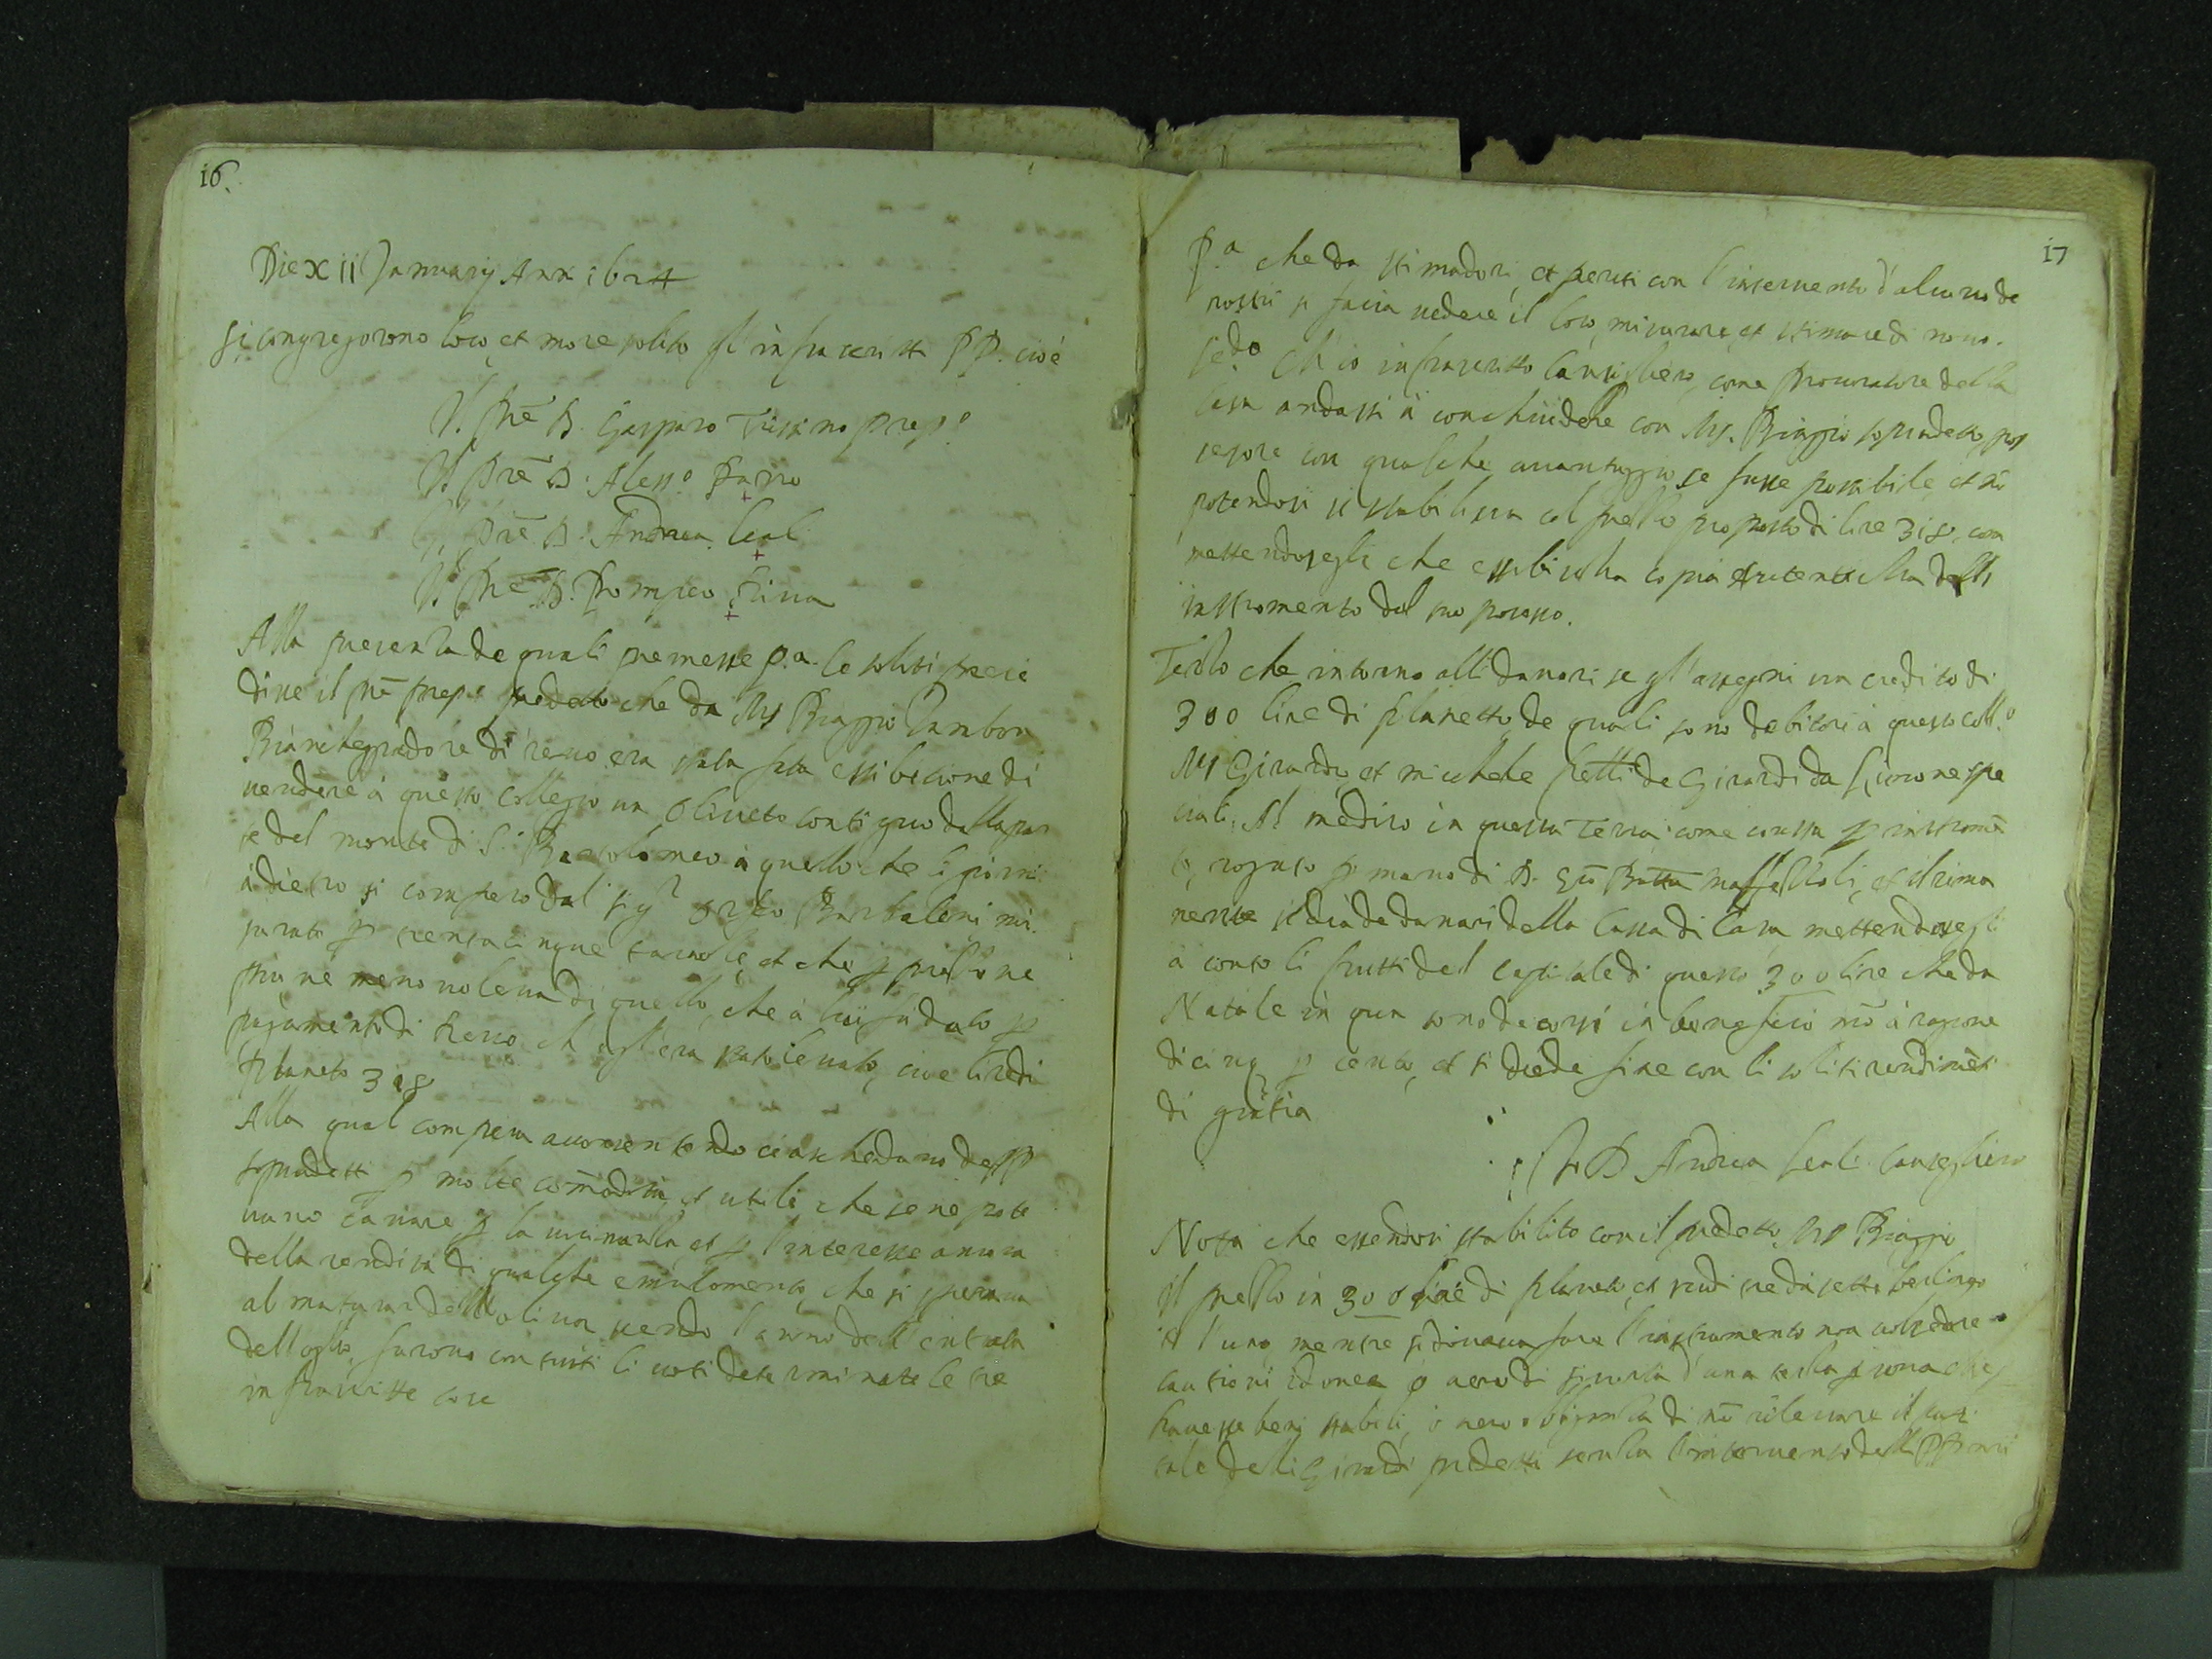 16.
Die xii Januarij Anni 1624
Si congregorono loco, et more solito gl'infrascritti PP. cioè
Il Pre D. Gasparo Trissino Prep.o
Il Pre D. Aless.o Parro
Il Pre D. Andrea Leali
Il Pre D. Pompeo Riva
Alla presenza de quali premesse p.a le solite precie
disse il Pre Prep.o predetto che da Ms Biaggio Zambon
di era stata fatta essibicione di
vendere à questo Collegio un Oliveto contiguo dalla par
te del monte di S. Bartolomeo à quello che li giorni
à dietro si comperò dal Sig.r Barbaleni mi
surato p trentacinque tavole, et che p prezzo ne
più ne meno voleva di quello, che à lui fu dato p
pagamento di ch'egl'era stato levato, cioè lire di
Planeto 318
Alla qual compera acconsentendo ciascheduno de PP
sopradetti p molte comodità, et utili, che se ne pote
vano cavare p la vicinanza, et p l'interesse ancora
della rendita di qualche emolomento, che si sperava
al maturar dell'oliva, sendo l'anno dell'entrata
dell'oglio, furono con tutti li voti determinate le tre
infrascritte cose
17
P.a che da stimadori, et periti con l'intervento d'alcuno de
nostri si facia vedere il loco, misurare, et stimare di novo.
Sec.do Ch'io infrascritto Cancigliero, come Procuratore della
Casa andassi à conchiudere con Ms. Biaggio sopradetto pos
sessore con qualche avantaggio se fusse possibile et nō
potendosi si stabilissa col prezzo proposto di lire 318, com
mettendosegli che essibischa copia autenticha dell'
instromento del suo possesso.
Terzo che intorno alli danari se gl'assegni un credito di
300 lire di planetto, de quali sono debitori à questo coll.o
Ms Girardo, et michele fretelli de Girardi da spe
ciali Al medico in questa Terra come consta p instromē
to, rogato p mano di D. Gio Batta et il rima
nente si dia de danari della Cassa di Casa mettendosegli
à conto li frutti del capitale di queste 300 lire che da
Natale in qua sono decorsi in beneficio nrō à ragione
di cinq. p cento, et si diede fine con li soliti rendimēti
di gratia
D. Andrea Leali Cancegliero
Nota che essendosi stabilito con il predetto Ms Biaggio
il prezzo in 300 lire di planeto, et scudi tredasette
l'uno mentre si doveva fare l'instrumento non volendo
cautioni idonea ò vero di sicurtà d'una terza persona che
havesse beni stabili, ò vero obliganza di nō rilevare il capi
tale delli Girardi predetti senza l'intervento delli PP nostri